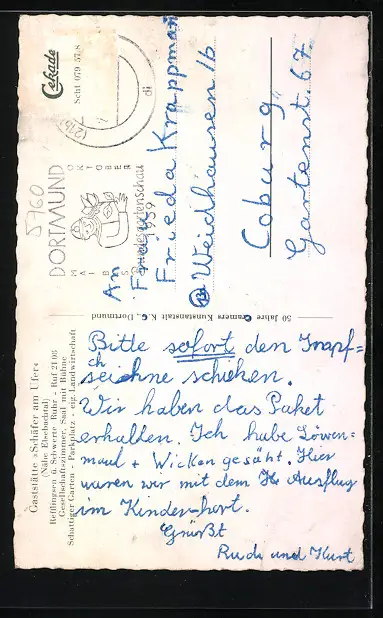 Gaststätte »Schäfer am Ufer«
(Nähe Elsebachtal)
Reffingsen ü. Schwerte Ruhr - Ruf 21 06
Gesellschaftszimmer, Saal mit Bühne
Schattiger Garten - Parkplatz - eig. Landwirtschaft
Bitte sofort den Impf=
scheine schicken.
Wir haben das Paket
erhalten. Ich habe Löwen=
maul + Wicken gesäht. Hier
waren wir mit dem Ausflug
im Kinderhort.
Grüßt
Rudi und Kurt
50 Jahre Cramers Kunstanstalt K.G. Dortmund
Cekade
Scht 079 57.8
(21b)
5960
DORTMUND
MAI BIS OKTOBER
Bundesgartenschau
1959
An
Frieda Krappmann
Weidhausen 16
Coburg
Gartenst. 67